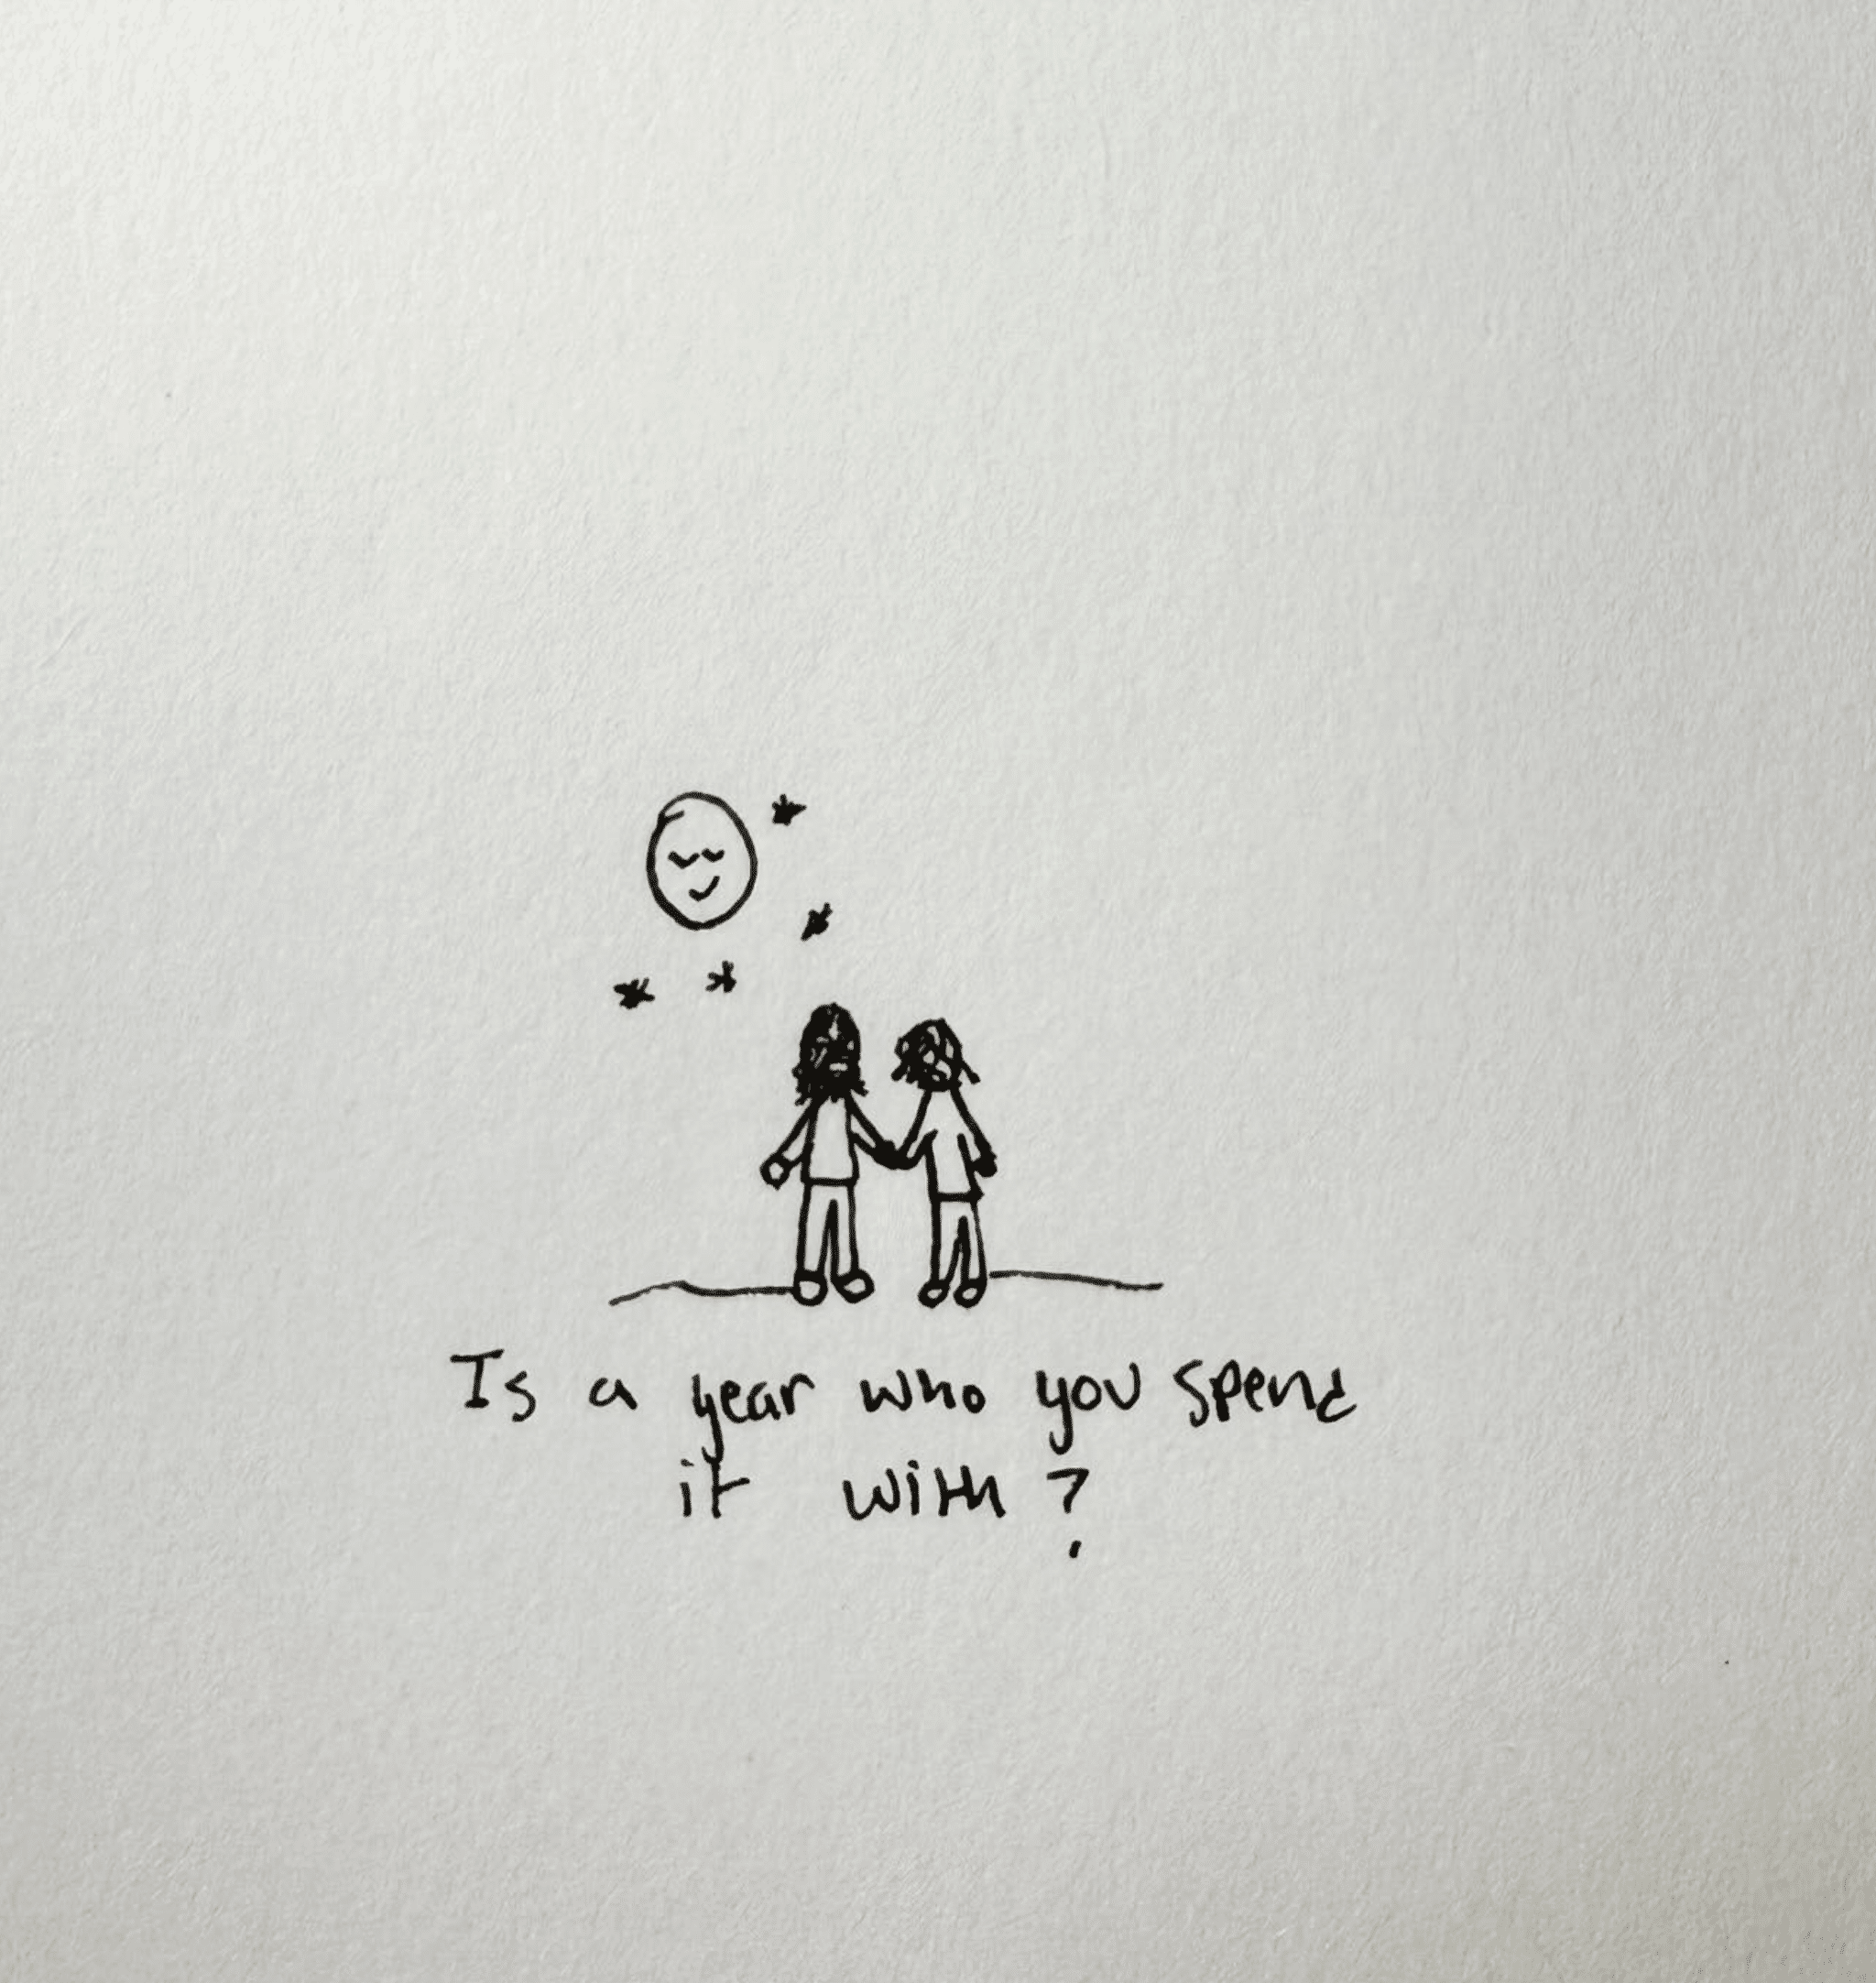 Is a year who you spend
it with?